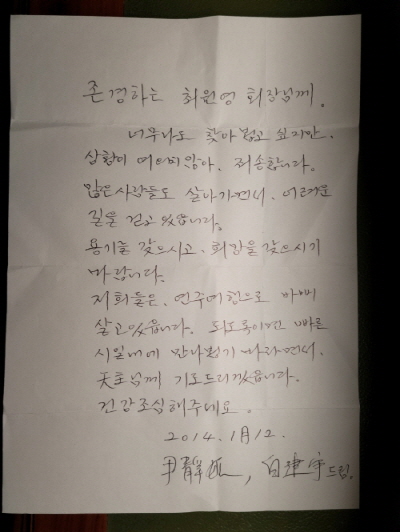 존경하는 최원영 회장님께.
너무나도 찾아뵙고 싶지만.
상황이 여의치않아, 죄송합니다.
많은사람들도 살아가면서, 어려운
길을 걷고있습니다.
용기를 갖으시고, 희망을 갖으시기
바랍니다.
저희들은, 연주여행으로 바삐
살고있읍니다. 되도록이면 빠른
시일내에 만나뵙기 바라면서,
天主님께 기도드리겠읍니다.
건강조심해주세요.
2014. 1月12.
尹靜姬, 白建宇드림.